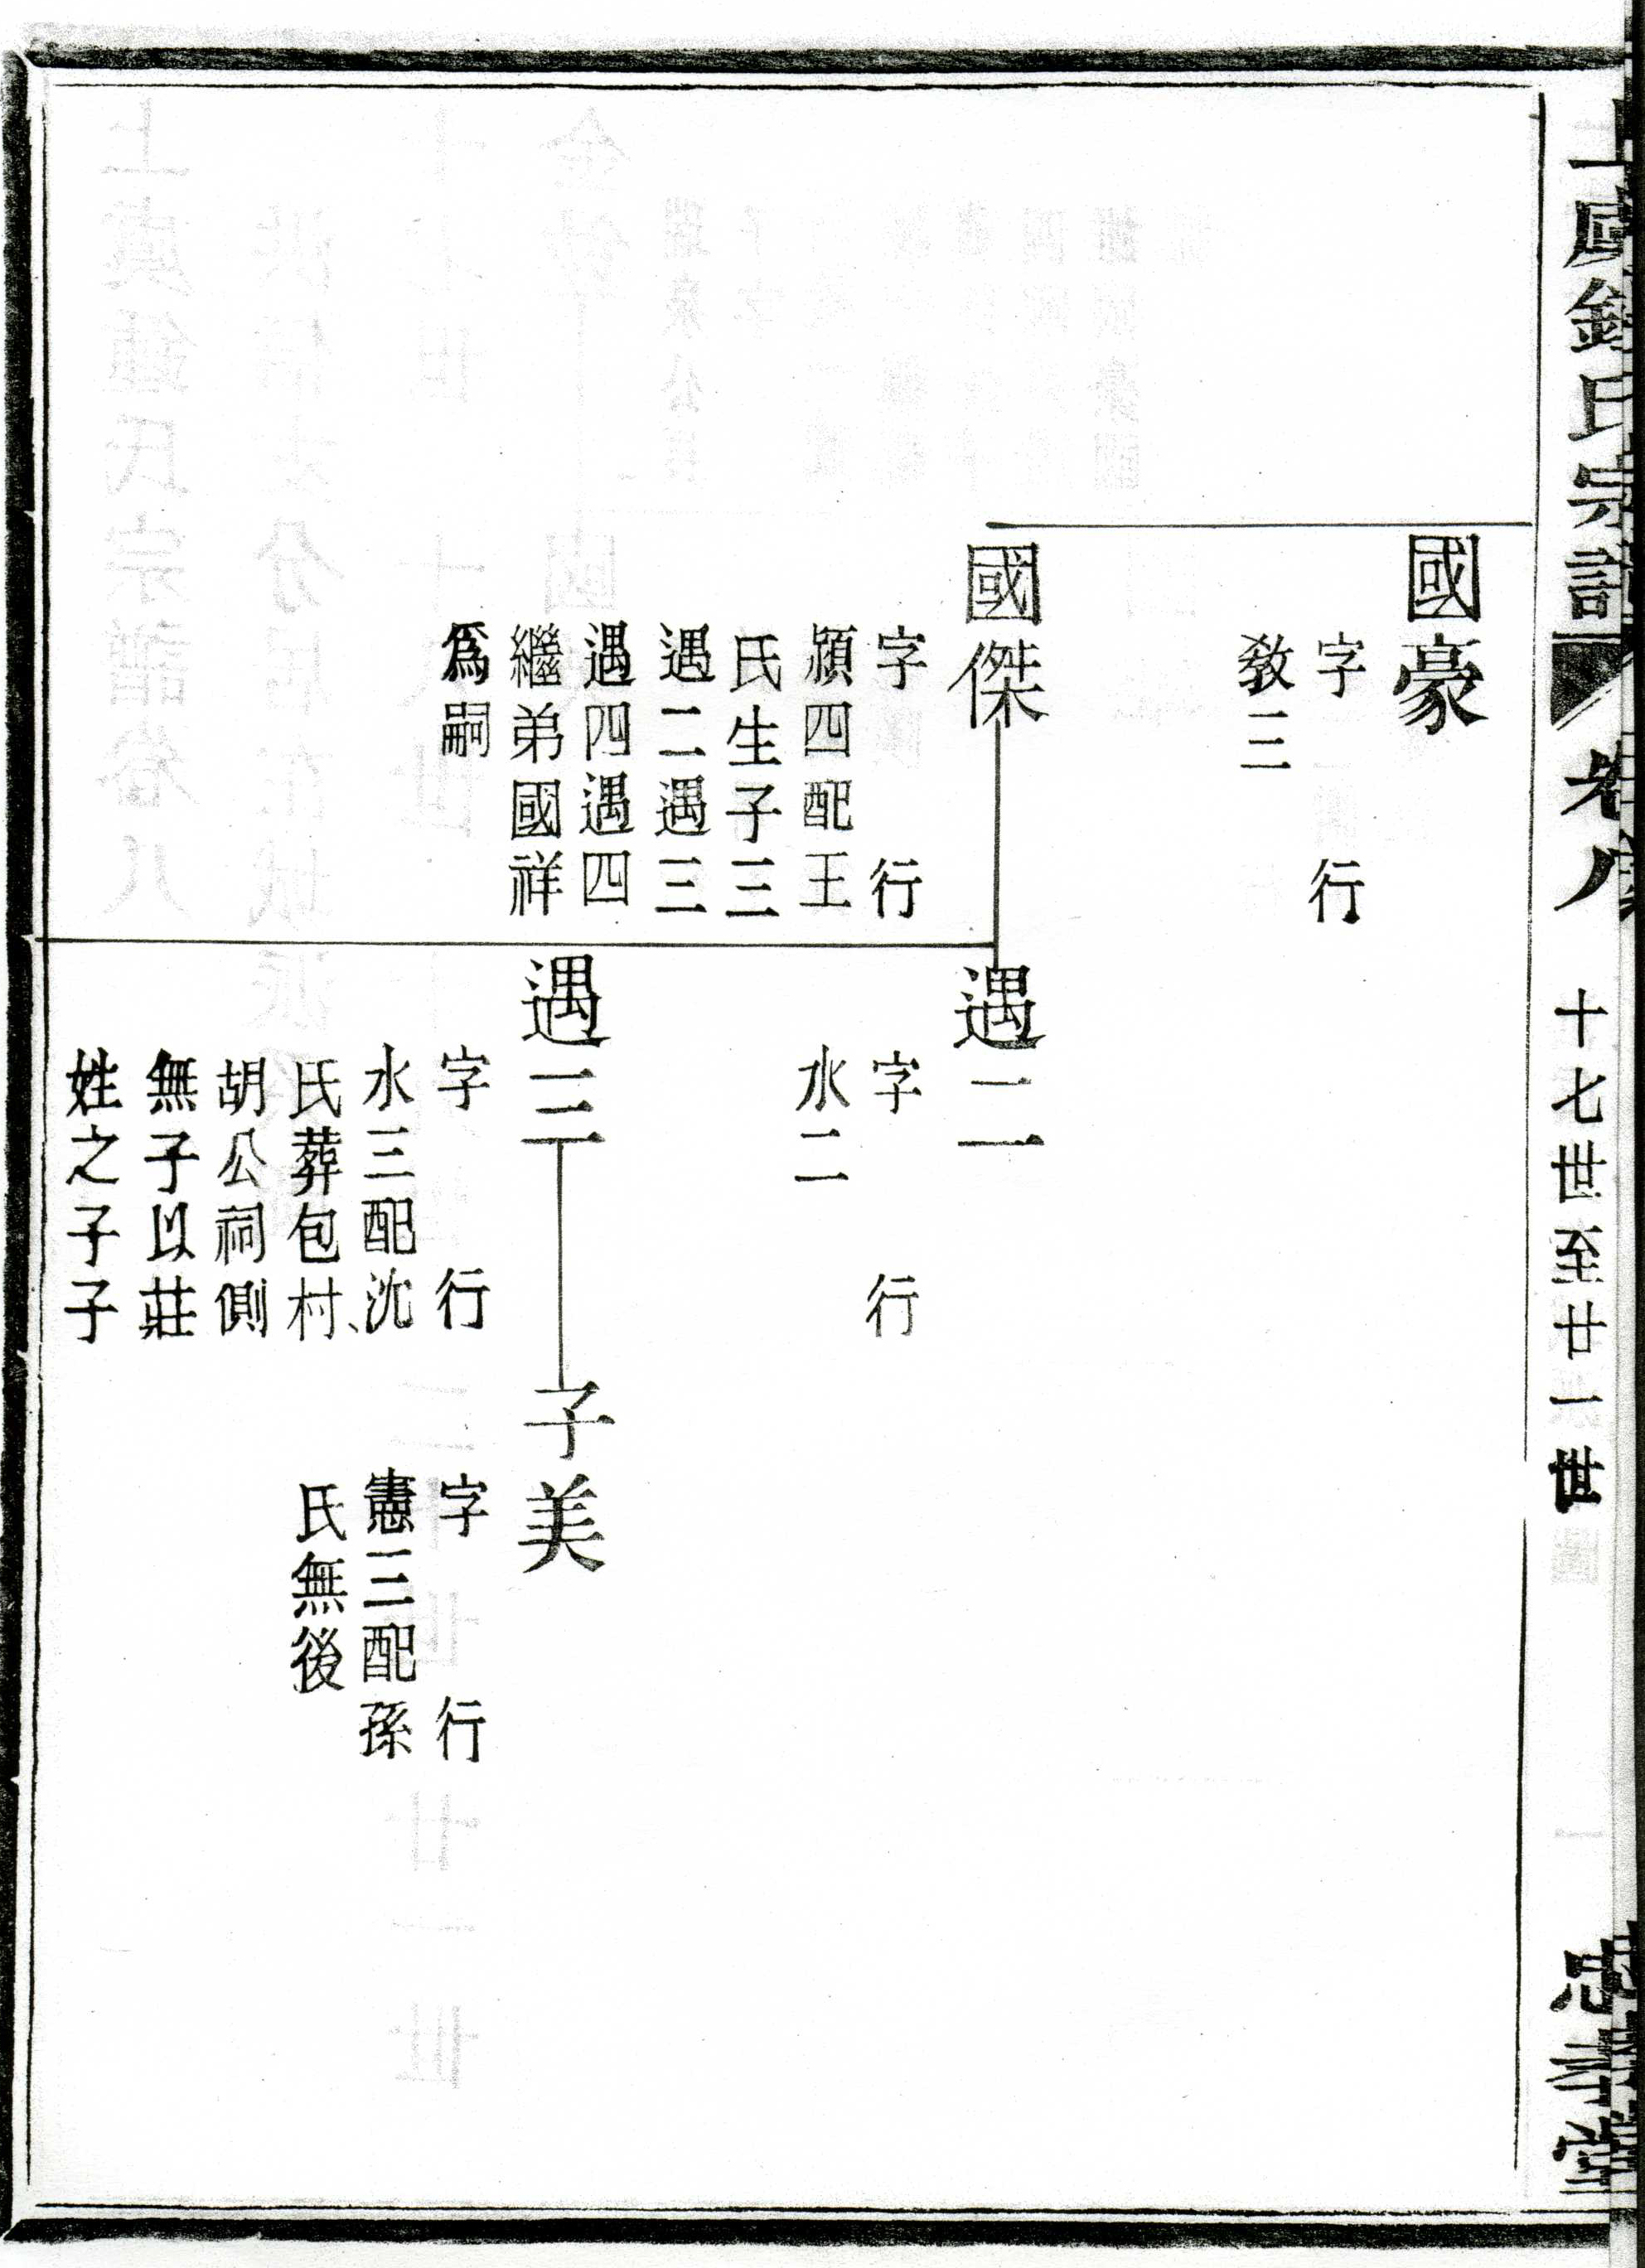 上虞鍾氏宗譜 卷八 十七世至廿一世
國豪
字 行
教三
國傑
字 行
潁四配王
氏生子三
遇二遇三
遇四遇四
繼弟國祥
爲嗣
遇二
字 行
水二
遇三
字 行
水三配沈
氏葬包村
胡公祠側
無子以莊
姓之子子
子美
字 行
憲三配孫
氏無後